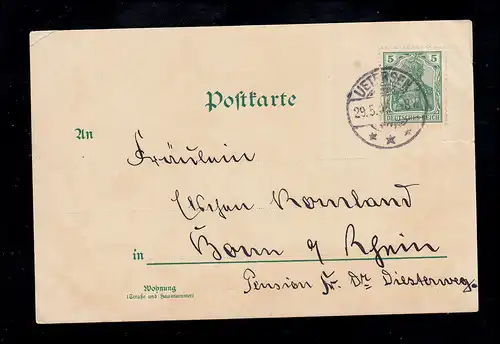 Postkarte
5 5
DEUTSCHES REICH
UETERSEN
29.5.
An
Fräulein
Elschen Romland
in Bonn a/ Rhein
Pension Fr. Dr. Diesterweg.
Wohnung
(Straße und Hausnummer)